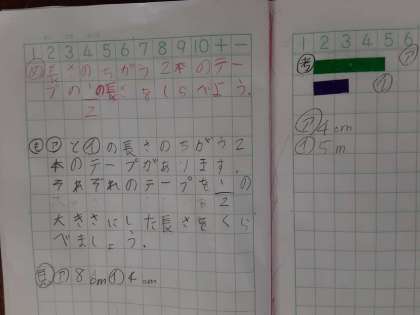 1 2 3 4 5 6 7 8 9 10 + -
め 長さのちがう2本のテー
プの1/2の長さをしらべよう。
も ㋐と㋑の長さのちがう2
本のテープがあります。
それぞれのテープを1/2の
大きさにした長さをくら
べましょう。
㋐8cm ㋑4cm
1 2 3 4 5 6
考 ㋐
㋑
㋐4cm
㋑5m